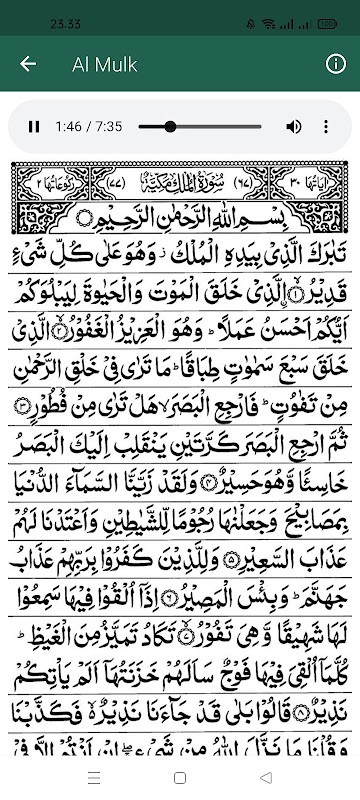 23.33
Al Mulk
1:46 / 7:35
اٰیاتھا ۳۰ (۶۷) سُوْرَةُ الْمُلْكِ مَكِّیَّةٌ (۷۷) رکوعاتھا ۲
بِسْمِ اللّٰهِ الرَّحْمٰنِ الرَّحِیْمِ
تَبٰرَكَ الَّذِیْ بِیَدِهِ الْمُلْكُ ؗ وَهُوَ عَلٰی كُلِّ شَیْءٍ
قَدِیْرُ ۙ﴿۱﴾ الَّذِیْ خَلَقَ الْمَوْتَ وَالْحَیٰوةَ لِیَبْلُوَكُمْ
اَیُّكُمْ اَحْسَنُ عَمَلًا ؕ وَهُوَ الْعَزِیْزُ الْغَفُوْرُ ۙ﴿۲﴾ الَّذِیْ
خَلَقَ سَبْعَ سَمٰوٰتٍ طِبَاقًا ؕ مَا تَرٰی فِیْ خَلْقِ الرَّحْمٰنِ
مِنْ تَفٰوُتٍ ؕ فَارْجِعِ الْبَصَرَ ۙ هَلْ تَرٰی مِنْ فُطُوْرٍ ﴿۳﴾
ثُمَّ ارْجِعِ الْبَصَرَ كَرَّتَیْنِ یَنْقَلِبْ اِلَیْكَ الْبَصَرُ
خَاسِئًا وَّهُوَ حَسِیْرٌ ﴿۴﴾ وَلَقَدْ زَیَّنَّا السَّمَآءَ الدُّنْیَا
بِمَصَابِیْحَ وَجَعَلْنٰهَا رُجُوْمًا لِّلشَّیٰطِیْنِ وَاَعْتَدْنَا لَهُمْ
عَذَابَ السَّعِیْرِ ﴿۵﴾ وَلِلَّذِیْنَ كَفَرُوْا بِرَبِّهِمْ عَذَابُ
جَهَنَّمَ ؕ وَبِئْسَ الْمَصِیْرُ ﴿۶﴾ اِذَاۤ اُلْقُوْا فِیْهَا سَمِعُوْا
لَهَا شَهِیْقًا وَّهِیَ تَفُوْرُ ۙ﴿۷﴾ تَكَادُ تَمَیَّزُ مِنَ الْغَیْظِ ؕ
كُلَّمَاۤ اُلْقِیَ فِیْهَا فَوْجٌ سَاَلَهُمْ خَزَنَتُهَاۤ اَلَمْ یَاْتِكُمْ
نَذِیْرٌ ﴿۸﴾ قَالُوْا بَلٰی قَدْ جَآءَنَا نَذِیْرٌ ۬ۙ فَكَذَّبْنَا
وَقُلْنَا مَا نَزَّلَ اللّٰهُ مِنْ شَیْءٍ ۚۖ اِنْ اَنْتُمْ اِلَّا فِیْ